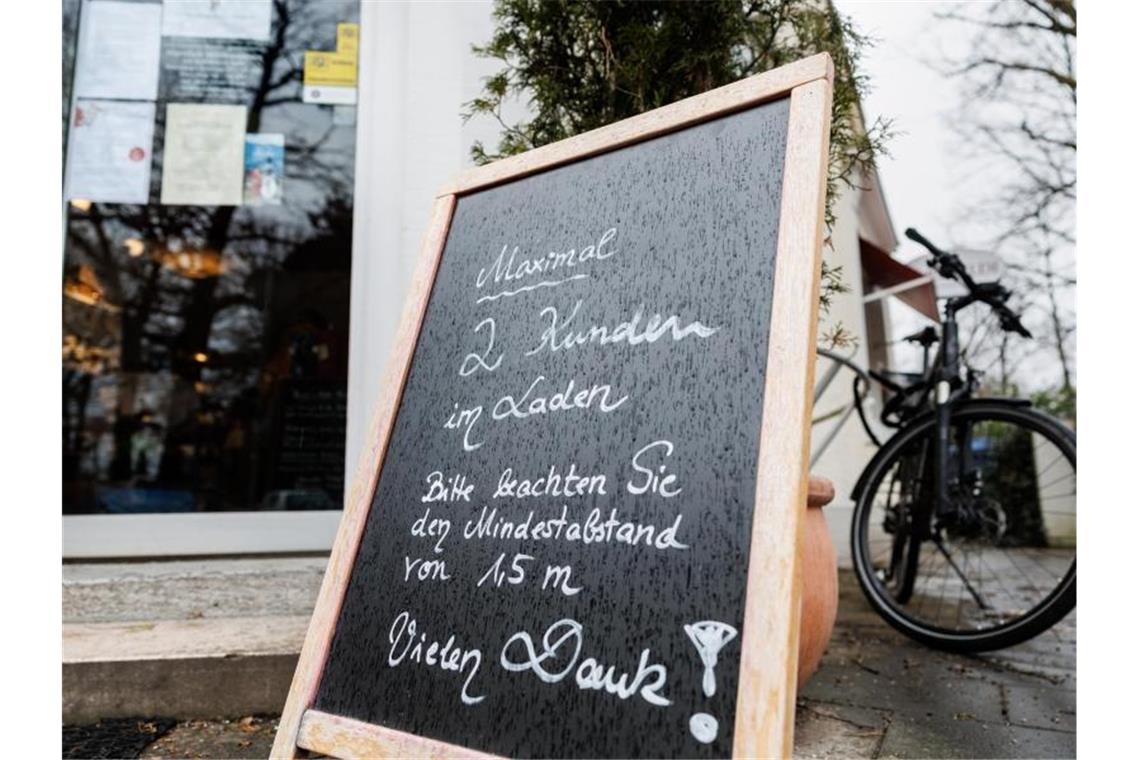 Maximal
2 Kunden
im Laden
Bitte beachten Sie
den Mindestabstand
von 1,5 m
Vielen Dank !